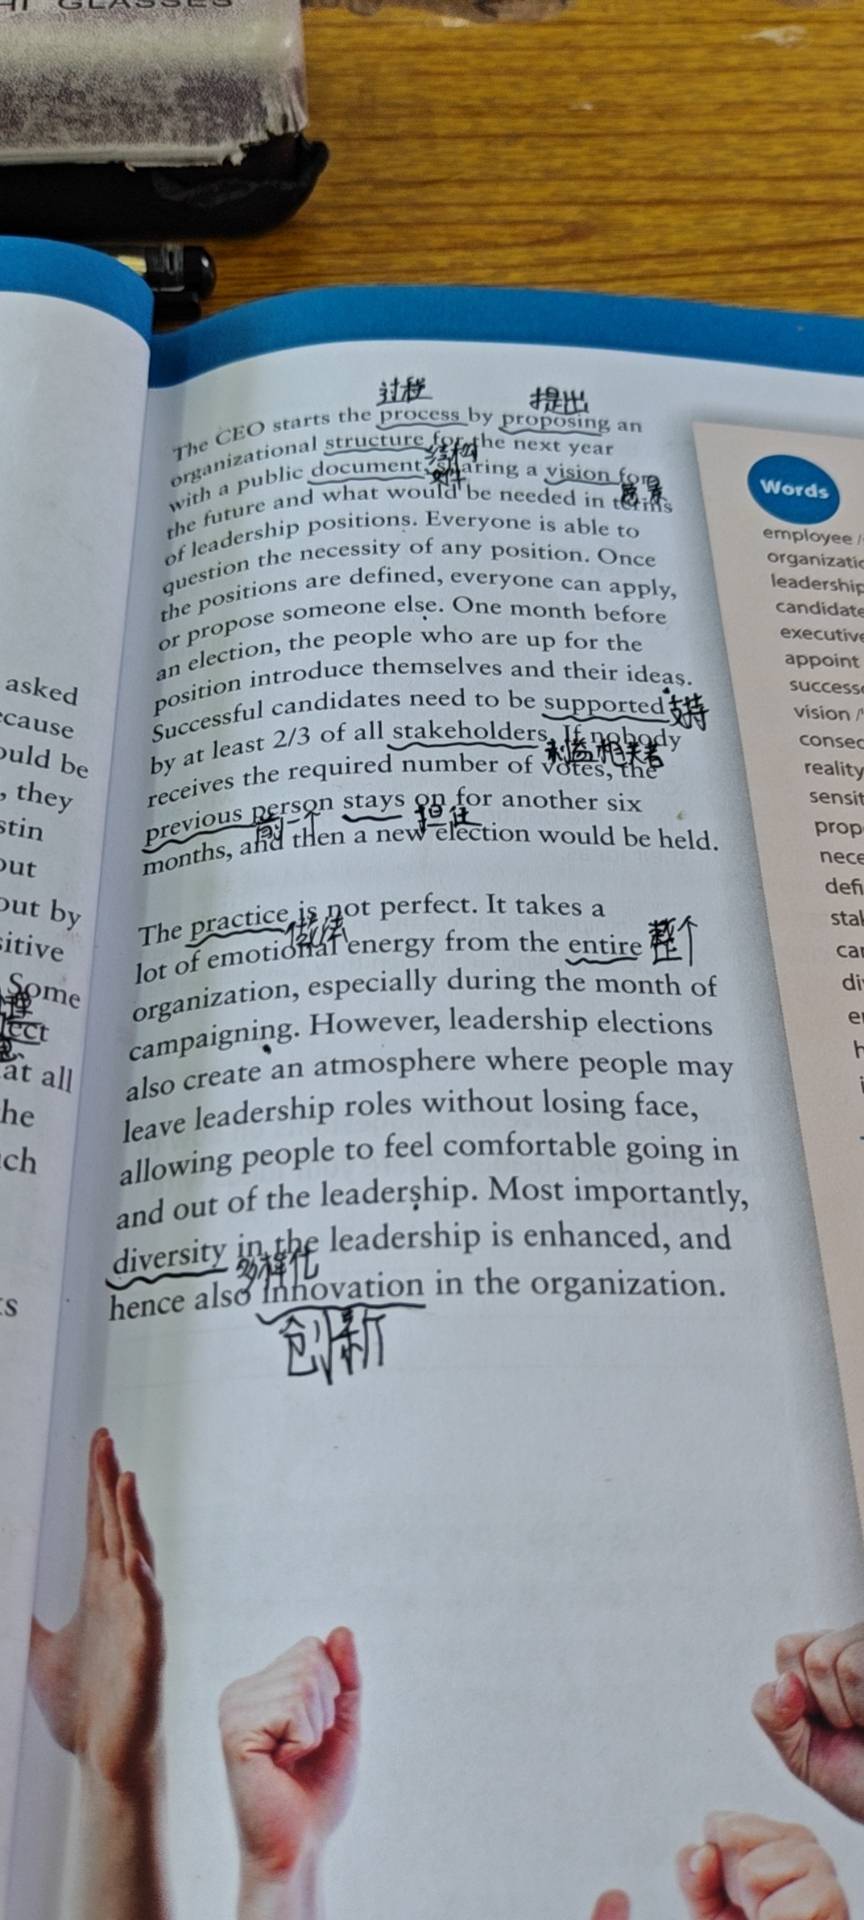 GLASSES
过程 提出
The CEO starts the process by proposing an
organizational structure for the next year
结构
with a public document, sharing a vision for
文件 愿景
the future and what would be needed in terms
of leadership positions. Everyone is able to
question the necessity of any position. Once
the positions are defined, everyone can apply,
or propose someone else. One month before
an election, the people who are up for the
position introduce themselves and their ideas.
Successful candidates need to be supported 支持
by at least 2/3 of all stakeholders. If nobody
利益相关者
receives the required number of votes, the
previous person stays on for another six
前一个 担任
months, and then a new election would be held.
The practice is not perfect. It takes a
做法
lot of emotional energy from the entire 整个
organization, especially during the month of
campaigning. However, leadership elections
also create an atmosphere where people may
leave leadership roles without losing face,
allowing people to feel comfortable going in
and out of the leadership. Most importantly,
diversity in the leadership is enhanced, and
多样化
hence also innovation in the organization.
创新
asked
cause
ould be
, they
stin
out
out by
sitive
Some
理
ect
at all
he
ch
ts
Words
employee /
organizatio
leadership
candidate
executive
appoint
success
vision /
consec
reality
sensit
prop
nece
defi
stal
car
di
e
h
i